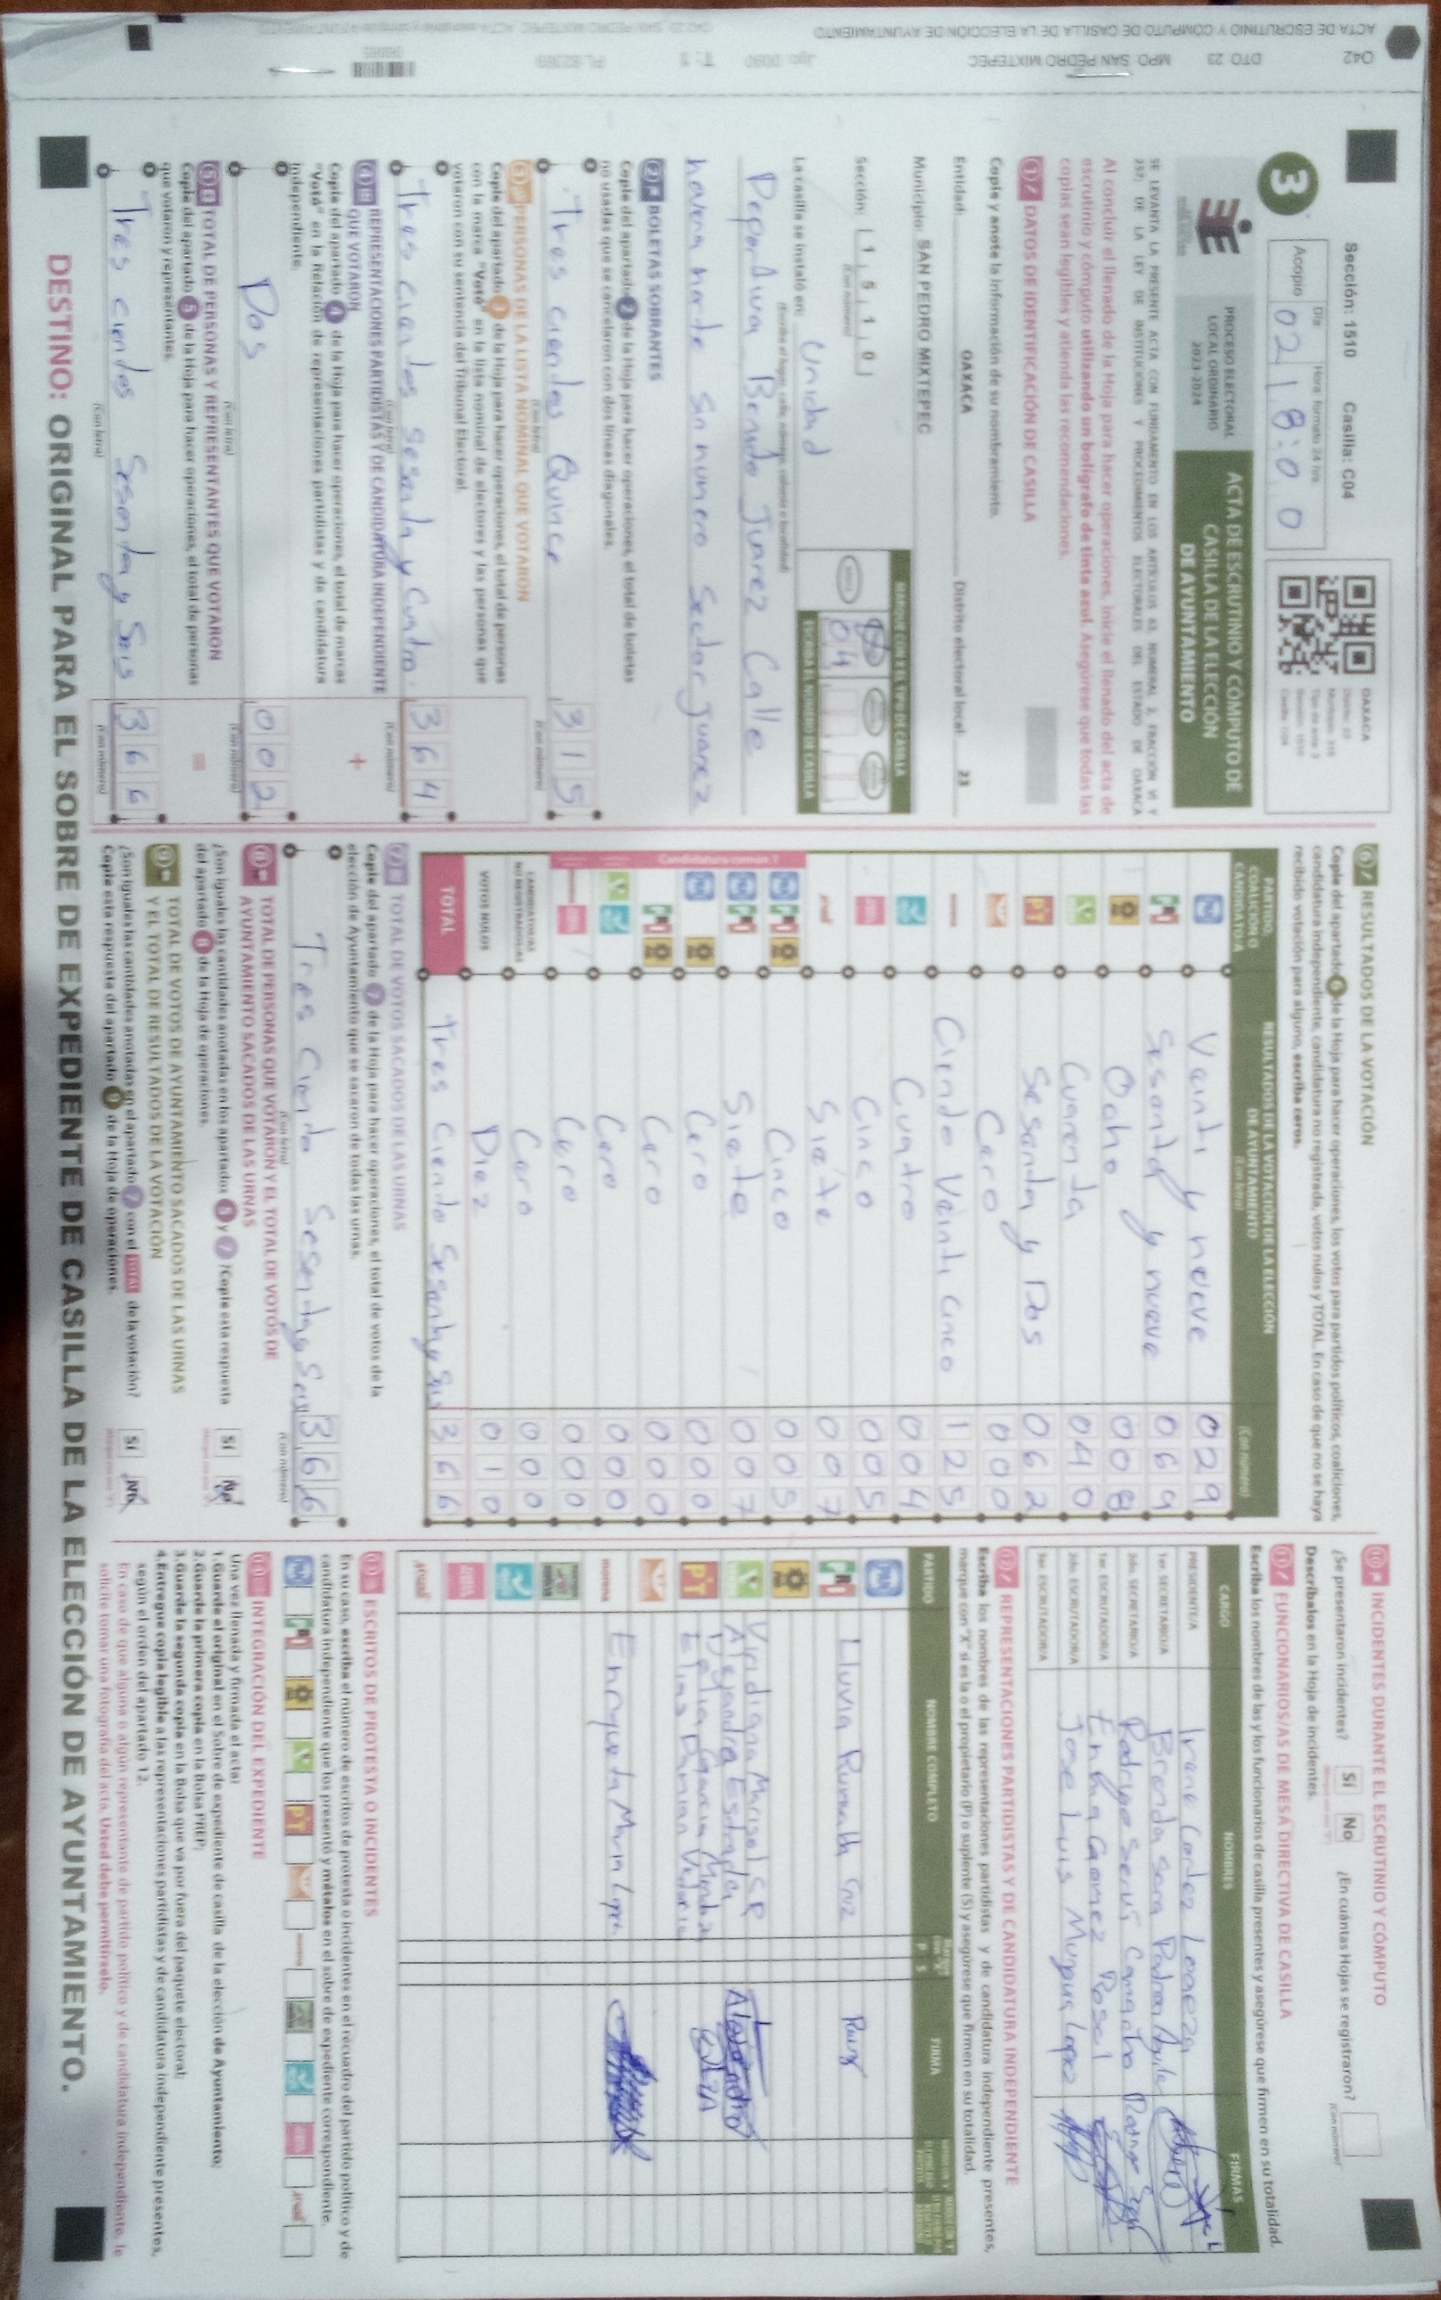 ACTA DE ESCRUTINIO Y CÓMPUTO DE CASILLA DE LA ELECCIÓN DE AYUNTAMIENTO
042 DTO. 23 MPO. SAN PEDRO MIXTEPEC
Sección: 1510 Casilla: C04
3
Acopio
Día
Hora formato 24 hrs.
02 18:00
OAXACA
PROCESO ELECTORAL
LOCAL ORDINARIO
2023-2024
ACTA DE ESCRUTINIO Y CÓMPUTO DE
CASILLA DE LA ELECCIÓN
DE AYUNTAMIENTO
SE LEVANTA LA PRESENTE ACTA CON FUNDAMENTO EN LOS ARTÍCULOS 63, NUMERAL 2, FRACCIÓN VI Y
257; DE LA LEY DE INSTITUCIONES Y PROCEDIMIENTOS ELECTORALES DEL ESTADO DE OAXACA
Al concluir el llenado de la Hoja para hacer operaciones, inicie el llenado del acta de
escrutinio y cómputo utilizando un bolígrafo de tinta azul. Asegúrese que todas las
copias sean legibles y atienda las recomendaciones.
1 DATOS DE IDENTIFICACIÓN DE CASILLA
Copie y anote la información de su nombramiento.
Entidad: OAXACA Distrito electoral local: 23
Municipio: SAN PEDRO MIXTEPEC
MARQUE CON X EL TIPO DE CASILLA
Sección: 1510
(Con número)
04
ESCRIBA EL NÚMERO DE CASILLA
La casilla se instaló en: Unidad
Deportiva Benito Juarez Calle
sin numero Sector Juarez
2 BOLETAS SOBRANTES
Copie del apartado 2 de la Hoja para hacer operaciones, el total de boletas
no usadas que se cancelaron con dos líneas diagonales.
Tres cientos Quince 315
(Con letra) (Con número)
3 PERSONAS DE LA LISTA NOMINAL QUE VOTARON
Copie del apartado 3 de la Hoja para hacer operaciones, el total de personas
con la marca "Votó" en la lista nominal de electores y las personas que
votaron con su sentencia del Tribunal Electoral.
Tres cientos Sesenta y Cuatro 364
(Con letra) (Con número)
+
4 REPRESENTACIONES PARTIDISTAS Y DE CANDIDATURA INDEPENDIENTE
QUE VOTARON
Copie del apartado 4 de la Hoja para hacer operaciones, el total de marcas
"Votó" en la Relación de representaciones partidistas y de candidatura
independiente.
Dos 002
(Con letra) (Con número)
=
5 TOTAL DE PERSONAS Y REPRESENTANTES QUE VOTARON
Copie del apartado 5 de la Hoja para hacer operaciones, el total de personas
que votaron y representantes.
Tres cientos Sesenta y Seis 366
(Con letra) (Con número)
6 RESULTADOS DE LA VOTACIÓN
Copie del apartado 6 de la Hoja para hacer operaciones, los votos para partidos políticos, coaliciones,
candidatura independiente, candidatura no registrada, votos nulos y TOTAL. En caso de que no se haya
recibido votación para alguno, escriba ceros.
PARTIDO,
COALICIÓN O
CANDIDATO/A
RESULTADOS DE LA VOTACIÓN DE LA ELECCIÓN
DE AYUNTAMIENTO
(Con letra)
(Con número)
Veinti y nueve 029
Sesenta y nueve 069
Ocho 008
Cuarenta 040
PT Sesenta y Dos 062
Cero 000
morena Ciento Veinti cinco 125
Cuatro 004
Cinco 005
Siete 007
Candidatura común 1
Cinco 005
Siete 007
Cero 000
Cero 000
Cero 000
Cero 000
CANDIDATURAS
NO REGISTRADAS Cero 000
VOTOS NULOS Diez 010
TOTAL Tres Ciento Sesenta y Seis 366
7 TOTAL DE VOTOS SACADOS DE LAS URNAS
Copie del apartado 7 de la Hoja para hacer operaciones, el total de votos de la
elección de Ayuntamiento que se sacaron de todas las urnas.
Tres Ciento Sesenta y Seis 366
(Con letra) (Con número)
8 TOTAL DE PERSONAS QUE VOTARON Y EL TOTAL DE VOTOS DE
AYUNTAMIENTO SACADOS DE LAS URNAS
¿Son iguales las cantidades anotadas en los apartados 5 y 7? Copie esta respuesta
del apartado 8 de la Hoja de operaciones.
Sí No
9 TOTAL DE VOTOS DE AYUNTAMIENTO SACADOS DE LAS URNAS
Y EL TOTAL DE RESULTADOS DE LA VOTACIÓN
¿Son iguales las cantidades anotadas en el apartado 7 con el TOTAL de la votación?
Copie esta respuesta del apartado 9 de la Hoja de operaciones.
Sí No
10 INCIDENTES DURANTE EL ESCRUTINIO Y CÓMPUTO
¿Se presentaron incidentes? Sí No ¿En cuántas Hojas se registraron?
(Con número)
Descríbalos en la Hoja de incidentes.
11 FUNCIONARIOS/AS DE MESA DIRECTIVA DE CASILLA
Escriba los nombres de las y los funcionarios de casilla presentes y asegúrese que firmen en su totalidad.
CARGO NOMBRES FIRMAS
PRESIDENTE/A Irene Cortez
1er. SECRETARIO/A Brenda Sara
2do. SECRETARIO/A Rodrigo Camacho
1er. ESCRUTADOR/A Gomez
2do. ESCRUTADOR/A Jose Luis Lopez
3er. ESCRUTADOR/A
12 REPRESENTACIONES PARTIDISTAS Y DE CANDIDATURA INDEPENDIENTE
Escriba los nombres de las representaciones partidistas y de candidatura independiente presentes,
marque con "X" si es la o el propietario (P) o suplente (S) y asegúrese que firmen en su totalidad.
PARTIDO NOMBRE COMPLETO P S FIRMA
Lluvia
Viridiana
Alejandra Estrada
PT
morena Enriqueta Marin
13 ESCRITOS DE PROTESTA O INCIDENTES
En su caso, escriba el número de escritos de protesta o incidentes en el recuadro del partido político y de
candidatura independiente que los presentó y métalos en el sobre de expediente correspondiente.
14 INTEGRACIÓN DEL EXPEDIENTE
Una vez llenada y firmada el acta:
1. Guarde el original en el Sobre de expediente de casilla de la elección de Ayuntamiento;
2. Guarde la primera copia en la Bolsa PREP;
3. Guarde la segunda copia en la Bolsa que va por fuera del paquete electoral;
4. Entregue copia legible a las representaciones partidistas y de candidatura independiente presentes,
según el orden del apartado 12.
En caso de que alguna o algún representante de partido político y de candidatura independiente, le
solicite tomar una fotografía del acta, Usted debe permitírselo.
DESTINO: ORIGINAL PARA EL SOBRE DE EXPEDIENTE DE CASILLA DE LA ELECCIÓN DE AYUNTAMIENTO.